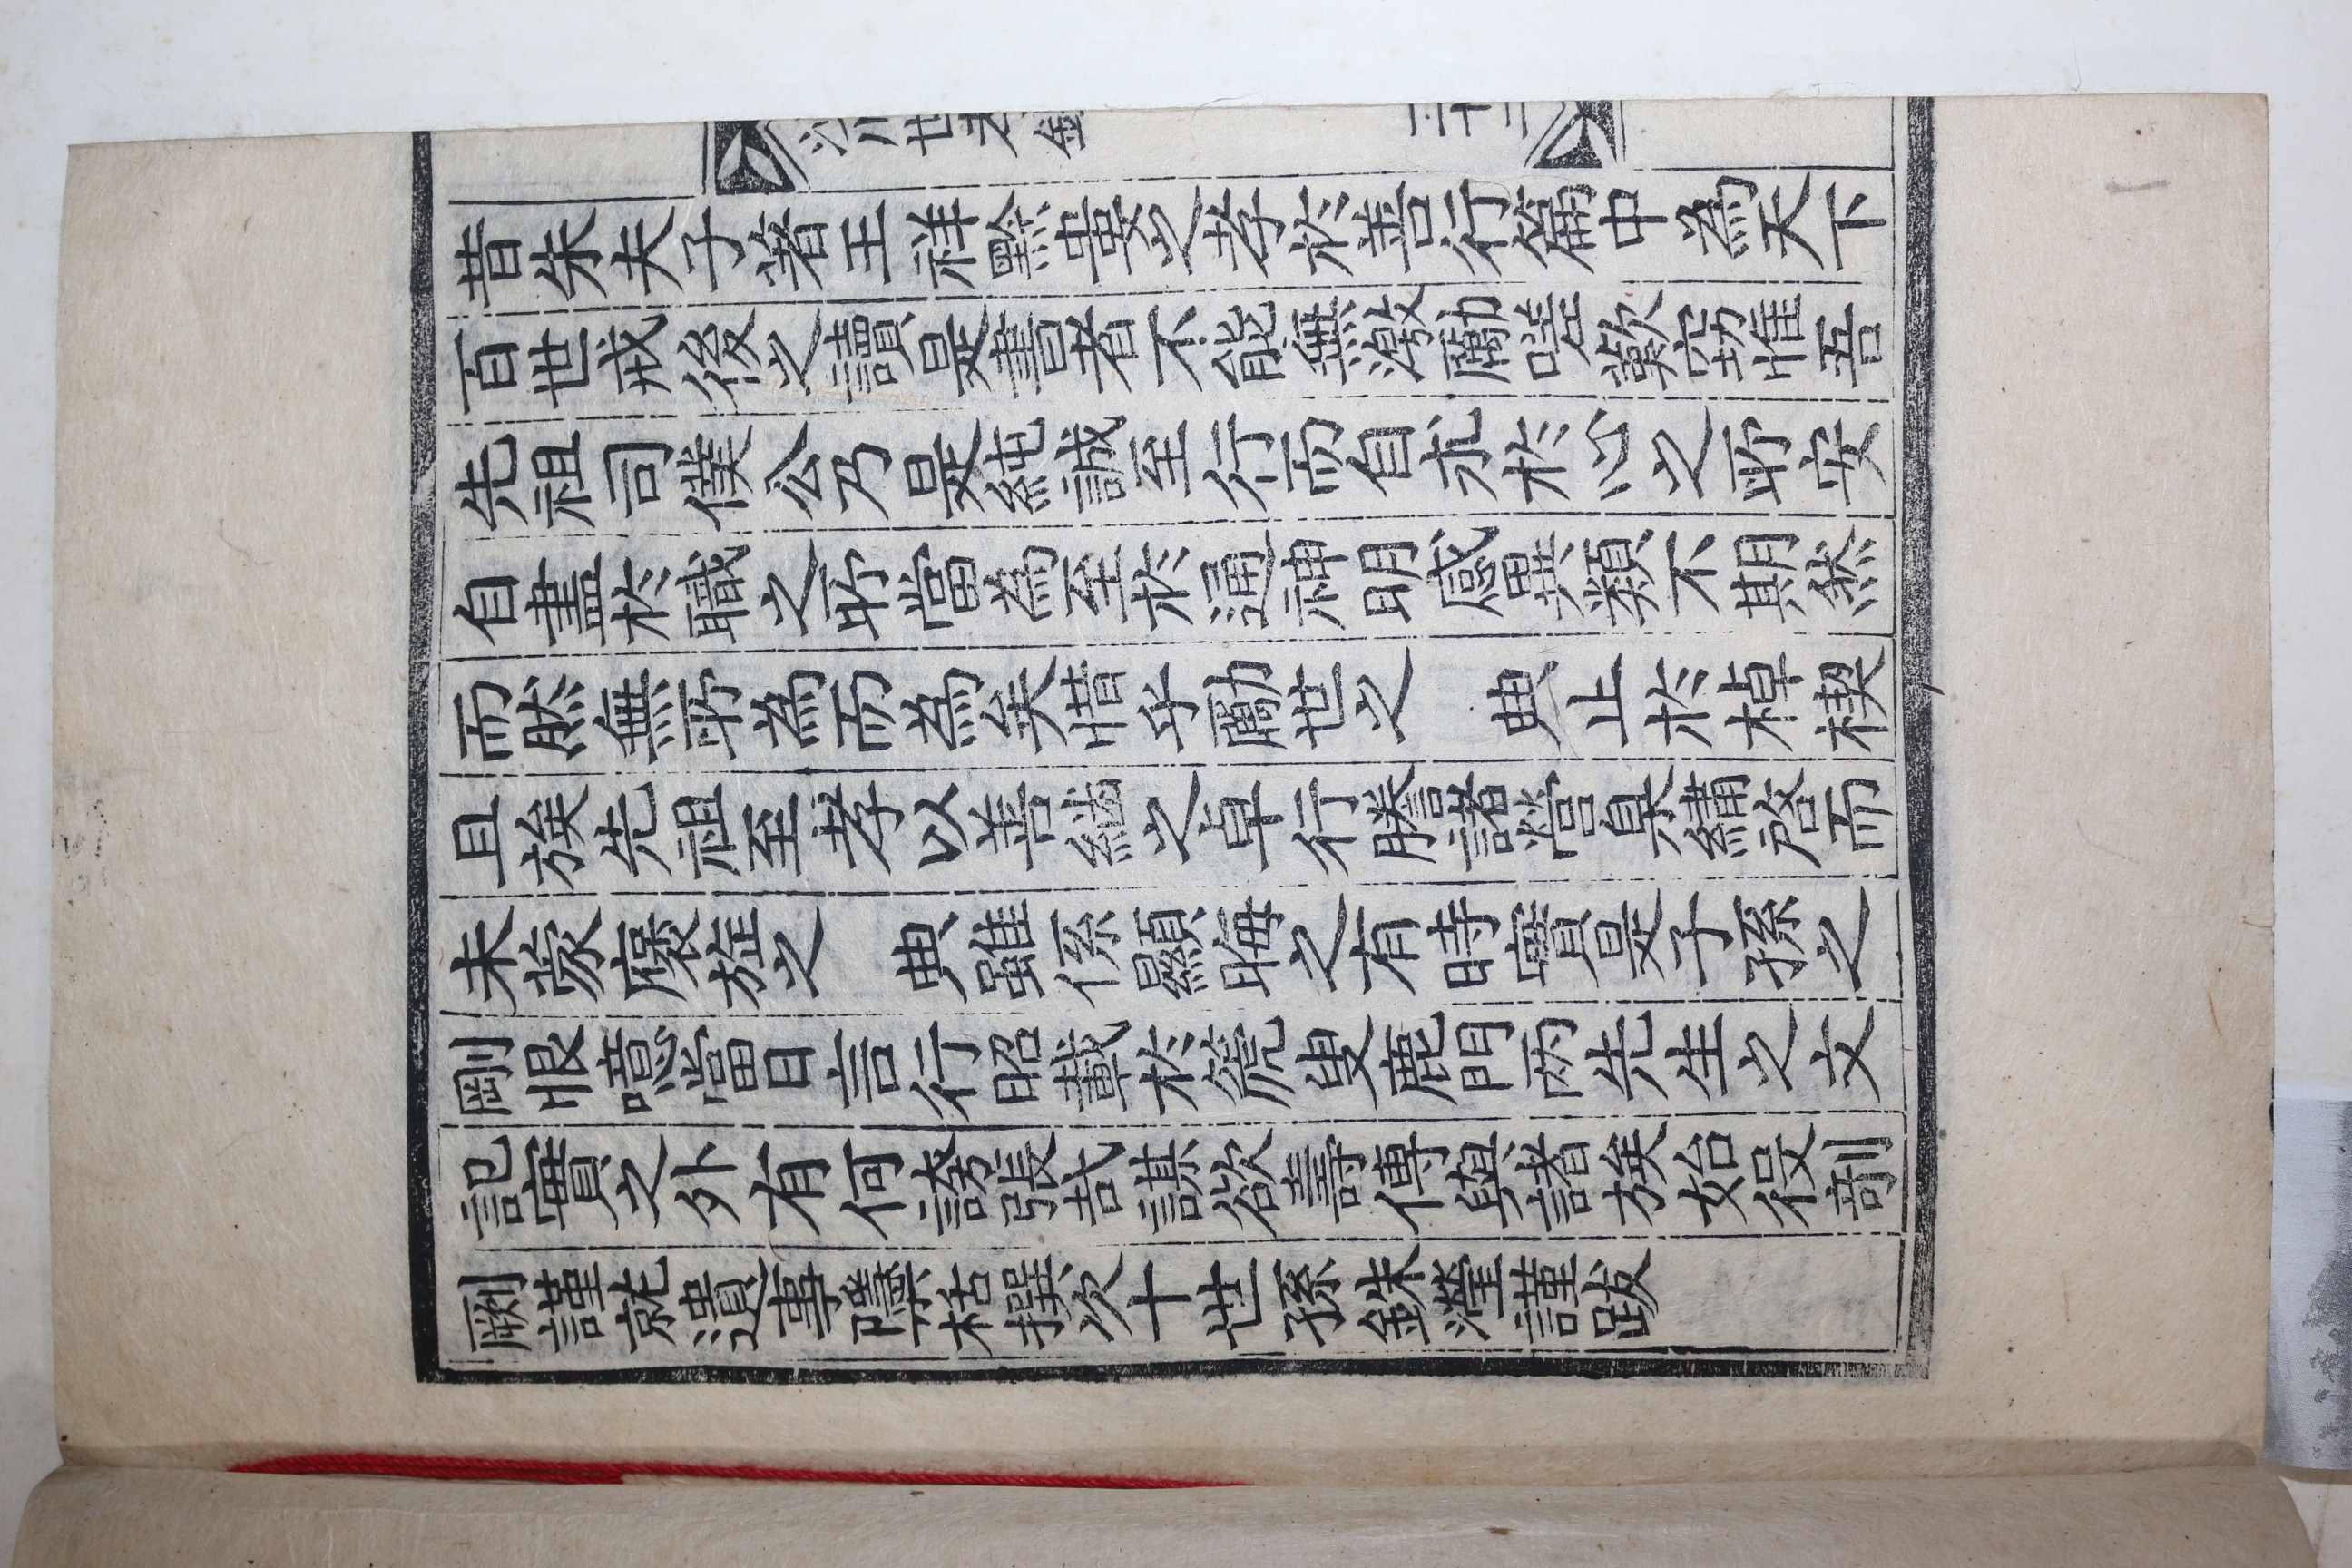 昔朱夫子著王祥黔婁之孝於善行篇中為天下
百世戒後之讀是書者不能無激勵嗟歎窃惟吾
先祖司僕公乃是純誠至行而自求於心之所安
自盡於職之所當為至於通神明感異類不期然
而然無所為而為矣惜乎勵世之 典止於棹楔
且族先祖至孝以善継之卓行謄諸營臬繡啓而
未蒙褒旌之 典雖係顯晦之有時實是子孫之
剛恨噫當日言行昭載於篪叟鹿門两先生之文
記實之外有何誇張哉謀欲壽傳與諸族始役剞
劂謹就遺事隱栝撰次十世孫銖瀅謹跋
沙川世孝錄
二十二